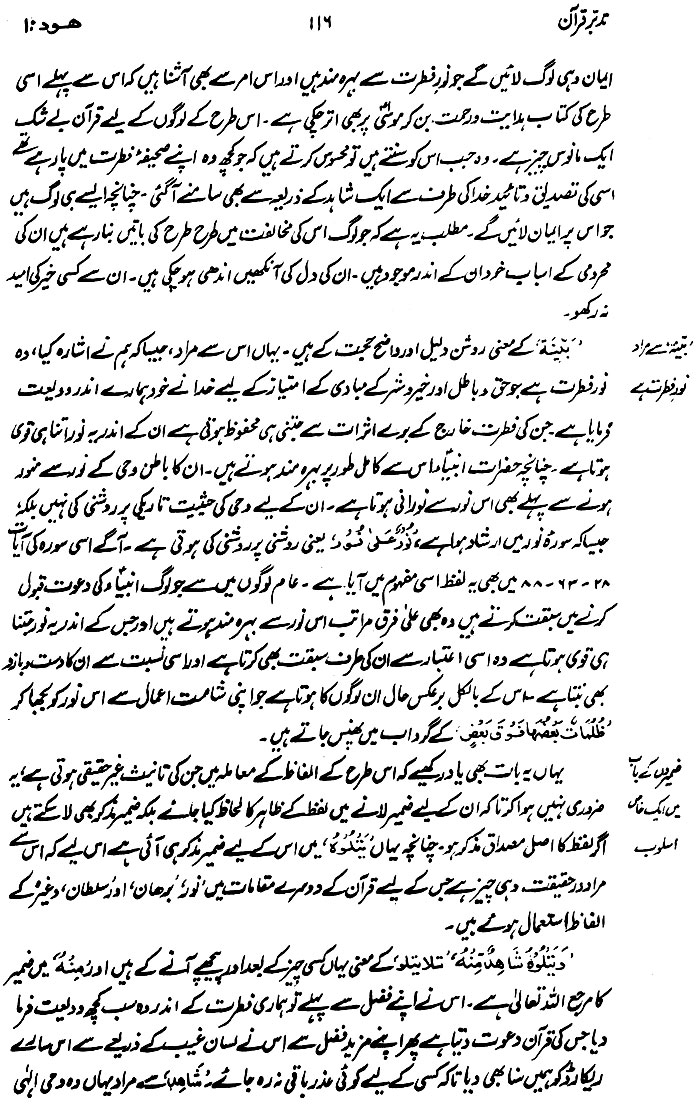 تدبر قرآن ۱۱۶ ھود:۱۱
ایمان وہی لوگ لائیں گے جو نورِ فطرت سے بہرہ مند ہیں اور اس امر سے بھی آشنا ہیں کہ اس سے پہلے اسی
طرح کی کتاب ہدایت و رحمت بن کر موسیٰؑ پر بھی اتر چکی ہے۔ اس طرح کے لوگوں کے لیے قرآن بے شک
ایک مانوس چیز ہے۔ وہ جب اس کو سنتے ہیں تو محسوس کرتے ہیں کہ جو کچھ وہ اپنے صحیفۂ فطرت میں پا رہے تھے
اسی کی تصدیق و تائید خدا کی طرف سے ایک شاہد کے ذریعہ سے بھی سامنے آ گئی۔ چنانچہ ایسے ہی لوگ ہیں
جو اس پر ایمان لائیں گے۔ مطلب یہ ہے کہ جو لوگ اس کی مخالفت میں طرح طرح کی باتیں بنا رہے ہیں ان کی
محرومی کے اسباب خود ان کے اندر موجود ہیں۔ ان کی دل کی آنکھیں اندھی ہو چکی ہیں۔ ان سے کسی خیر کی امید
نہ رکھو۔
'بینہ' سے مراد
نورِ فطرت ہے
'بَیِّنَۃ' کے معنی روشن دلیل اور واضح حجت کے ہیں۔ یہاں اس سے مراد، جیسا کہ ہم نے اشارہ کیا، وہ
نورِ فطرت ہے جو حق و باطل اور خیر و شر کے مبادی کے امتیاز کے لیے خدا نے خود ہمارے اندر ودیعت
فرمایا ہے۔ جن کی فطرت خارج کے برے اثرات سے جتنی ہی محفوظ ہوتی ہے ان کے اندر یہ نور اتنا ہی قوی
ہوتا ہے۔ چنانچہ حضرات انبیاؑء اس سے کامل طور پر بہرہ مند ہوتے ہیں۔ ان کا باطن وحی کے نور سے منور
ہونے سے پہلے بھی اس نور سے نورانی ہوتا ہے۔ ان کے لیے وحی کی حیثیت تاریکی پر روشنی کی نہیں بلکہ،
جیسا کہ سورۂ نور میں ارشاد ہوا ہے، 'نُوۡرٌ عَلٰی نُوۡرٍ' یعنی روشنی پر روشنی کی ہوتی ہے۔ آگے اسی سورہ کی آیات
۲۸ - ۶۳ - ۸۸ میں بھی یہ لفظ اسی مفہوم میں آیا ہے۔ عام لوگوں میں سے جو لوگ انبیاؑء کی دعوت قبول
کرنے میں سبقت کرتے ہیں وہ بھی علیٰ فرق مراتب اس نور سے بہرہ مند ہوتے ہیں اور جس کے اندر یہ نور جتنا
ہی قوی ہوتا ہے وہ اسی اعتبار سے ان کی طرف سبقت بھی کرتا ہے اور اسی نسبت سے ان کا دست و بازو
بھی بنتا ہے۔ اس کے بالکل برعکس حال ان لوگوں کا ہوتا ہے جو اپنی شامت اعمال سے اس نور کو بجھا کر
'ظُلُمٰتٌۢ بَعۡضُہَا فَوۡقَ بَعۡضٍ' کے گرداب میں پھنس جاتے ہیں۔
ضمیروں کے باب
میں ایک خاص
اسلوب
یہاں یہ بات بھی یاد رکھیے کہ اس طرح کے الفاظ کے معاملہ میں جن کی تانیث غیر حقیقی ہوتی ہے، یہ
ضروری نہیں ہوا کرتا کہ ان کے لیے ضمیر لانے میں لفظ کے ظاہر کا لحاظ کیا جائے بلکہ ضمیر مذکر بھی لا سکتے ہیں
اگر لفظ کا اصل مصداق مذکر ہو۔ چنانچہ یہاں 'یَتۡلُوۡہُ' میں اس کے لیے ضمیر مذکر ہی آئی ہے اس لیے کہ اس سے
مراد درحقیقت وہی چیز ہے جس کے لیے قرآن کے دوسرے مقامات میں 'نور'، 'برھان'، اور 'سلطان' وغیرہ کے
الفاظ استعمال ہوئے ہیں۔
'وَیَتۡلُوۡہُ شَاہِدٌ مِّنۡہُ' 'تلا یتلو' کے معنی یہاں کسی چیز کے بعد اور پیچھے آنے کے ہیں اور 'مِنۡہُ' میں ضمیر
کا مرجع اللہ تعالیٰ ہے۔ اس نے اپنے فضل سے پہلے تو ہماری فطرت کے اندر وہ سب کچھ ودیعت فرما
دیا جس کی قرآن دعوت دیتا ہے پھر اپنے مزید فضل سے اس نے لسان غیب کے ذریعے سے اس سارے
ریکارڈ کو ہمیں سنا بھی دیا تاکہ کسی کے لیے کوئی عذر باقی نہ رہ جائے۔ 'شَاھِدٌ' سے مراد یہاں وہ وحی الٰہی